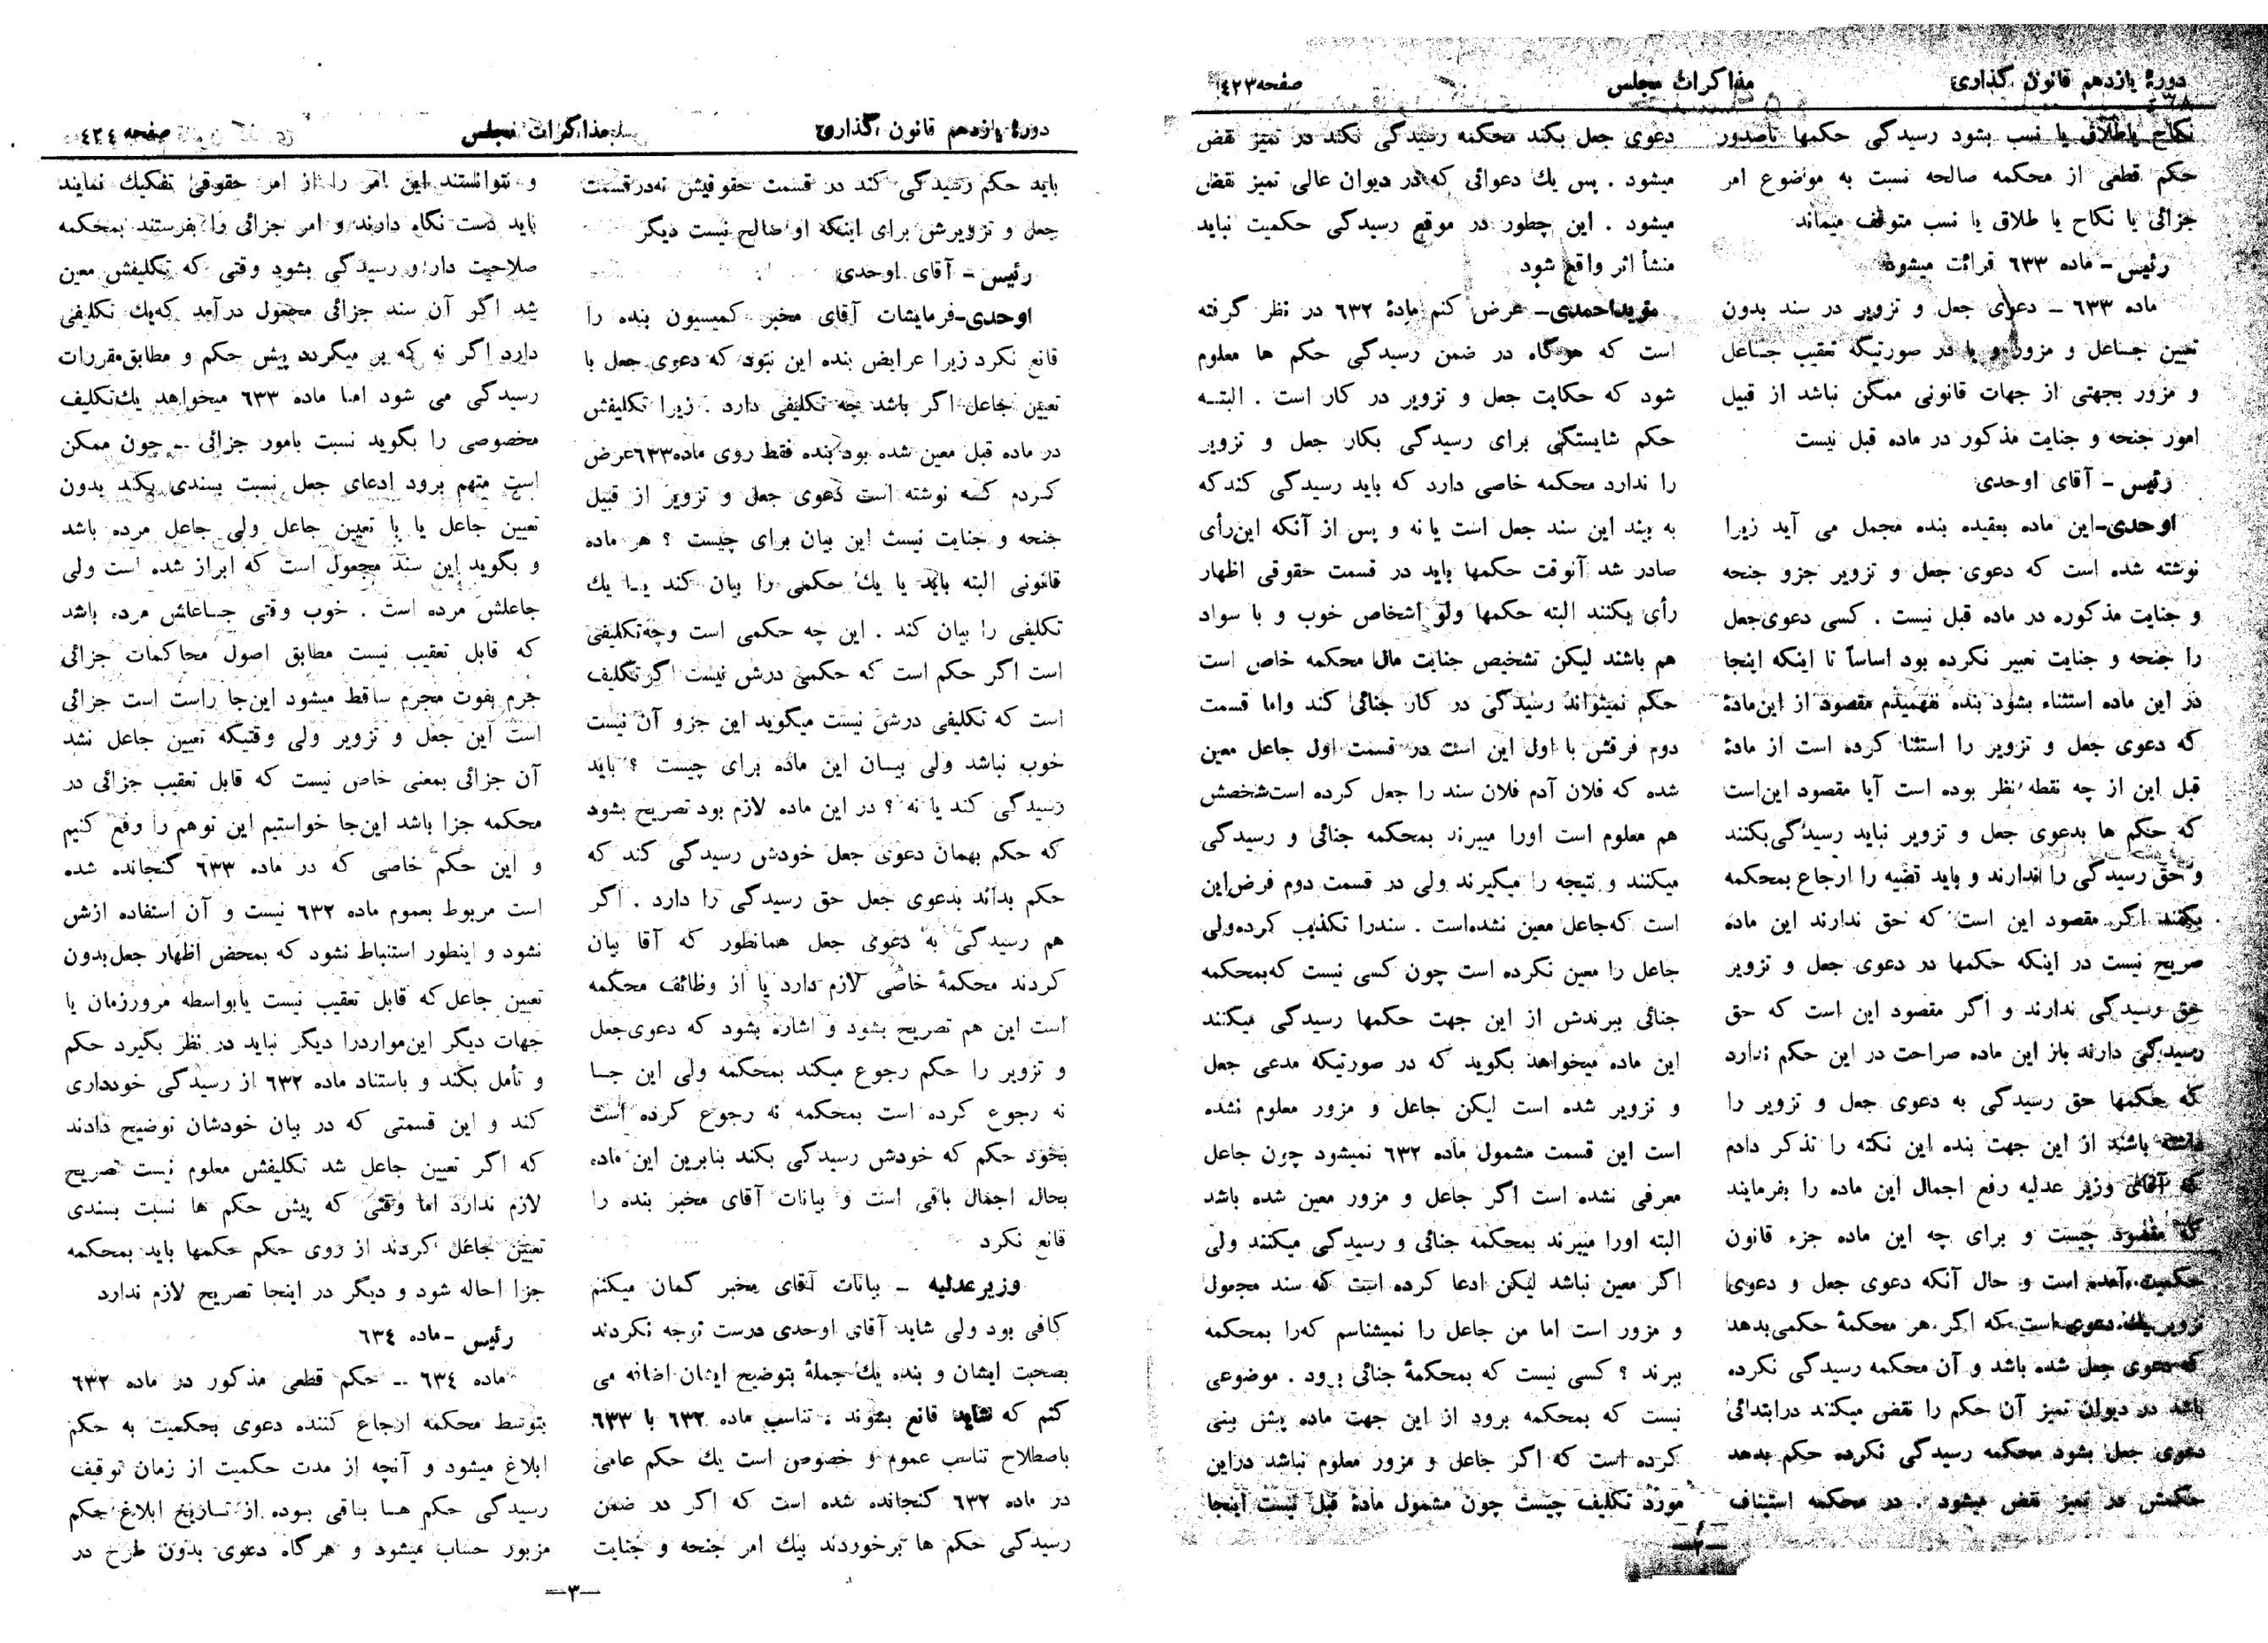 دورهٔ یازدهم قانون گذاری
مذاکرات مجلس
صفحه ٤٢٣
نکاح یاطلاق یا نسب بشود رسیدگی حکمها تاصدور
حکم قطعی از محکمه صالحه نسبت به موضوع امر
جزائی یا نکاح یا طلاق یا نسب متوقف میماند
رئیس - ماده ٦٣٣ قرائت میشود
ماده ٦٣٣ - دعوی جعل و تزویر در سند بدون
تعیین جاعل و مزور و یا در صورتیکه تعقیب جاعل
و مزور بجهتی از جهات قانونی ممکن نباشد از قبیل
امور جنحه و جنایت مذکور در ماده قبل نیست
رئیس - آقای اوحدی
اوحدی-این ماده بعقیده بنده مجمل می آید زیرا
نوشته شده است که دعوی جعل و تزویر جزو جنحه
و جنایت مذکوره در ماده قبل نیست . کسی دعوی‌جعل
را جنحه و جنایت تعبیر نکرده بود اساساً تا اینکه اینجا
در این ماده استثناء بشود بنده نفهمیدم مقصود از این‌مادهٔ
که دعوی جعل و تزویر را استثنا کرده است از مادهٔ
قبل این از چه نقطه نظر بوده است آیا مقصود این‌است
که حکم ها بدعوی جعل و تزویر نباید رسیدگی‌بکنند
و حق رسیدگی را ندارند و باید قضیه را ارجاع بمحکمه
بکنند اگر مقصود این است که حق ندارند این ماده
صریح نیست در اینکه حکمها در دعوی جعل و تزویر
حق رسیدگی ندارند و اگر مقصود این است که حق
رسیدگی دارند باز این ماده صراحت در این حکم ندارد
که حکمها حق رسیدگی به دعوی جعل و تزویر را
داشته باشند از این جهت بنده این نکته را تذکر دادم
که آقای وزیر عدلیه رفع اجمال این ماده را بفرمایند
که مقصود چیست و برای چه این ماده جزء قانون
حکمیت آمده است و حال آنکه دعوی جعل و دعوی
تزویر یك دعوی است که اگر هر محکمهٔ حکمی‌بدهد
که دعوی جعل شده باشد و آن محکمه رسیدگی نکرده
باشد در دیوان تمیز آن حکم را نقض میکند درابتدائی
دعوی جعل بشود محکمه رسیدگی نکرده حکم بدهد
حکمش در تمیز نقض میشود . در محکمه استیناف
دعوی جعل بکند محکمه رسیدگی نکند در تمیز نقض
میشود . پس یك دعوائی که در دیوان عالی تمیز نقض
میشود . این چطور در موقع رسیدگی حکمیت نباید
منشأ اثر واقع شود
مؤیداحمدی- عرض کنم مادهٔ ٦٣٢ در نظر گرفته
است که هرگاه در ضمن رسیدگی حکم ها معلوم
شود که حکایت جعل و تزویر در کار است . البته
حکم شایستگی برای رسیدگی بکار جعل و تزویر
را ندارد محکمه خاصی دارد که باید رسیدگی کندکه
به بیند این سند جعل است یا نه و پس از آنکه این‌رأی
صادر شد آنوقت حکمها باید در قسمت حقوقی اظهار
رأی بکنند البته حکمها ولو اشخاص خوب و با سواد
هم باشند لیکن تشخیص جنایت مال محکمه خاص است
حکم نمیتواند رسیدگی در کار جنائی کند واما قسمت
دوم فرقش با اول این است در قسمت اول جاعل معین
شده که فلان آدم فلان سند را جعل کرده است‌شخصش
هم معلوم است اورا میبرند بمحکمه جنائی و رسیدگی
میکنند و نتیجه را میگیرند ولی در قسمت دوم فرض‌این
است که‌جاعل معین نشده‌است . سندرا تکذیب کرده‌ولی
جاعل را معین نکرده است چون کسی نیست که‌بمحکمه
جنائی ببرندش از این جهت حکمها رسیدگی میکنند
این ماده میخواهد بگوید که در صورتیکه مدعی جعل
و تزویر شده است لیکن جاعل و مزور معلوم نشده
است این قسمت مشمول ماده ٦٣٢ نمیشود چون جاعل
معرفی نشده است اگر جاعل و مزور معین شده باشد
البته اورا میبرند بمحکمه جنائی و رسیدگی میکنند ولی
اگر معین نباشد لیکن ادعا کرده است که سند مجعول
و مزور است اما من جاعل را نمیشناسم که‌را بمحکمه
ببرند ؟ کسی نیست که بمحکمهٔ جنائی برود . موضوعی
نیست که بمحکمه برود از این جهت ماده پیش بینی
کرده است که اگر جاعل و مزور معلوم نباشد دراین
مورد تکلیف چیست چون مشمول مادهٔ قبل نیست اینجا
—٢—
دورهٔ یازدهم قانون گذاری
مذاکرات مجلس
صفحه ٤٢٤
باید حکم رسیدگی کند در قسمت حقوقیش نه‌درقسمت
جعل و تزویرش برای اینکه او صالح نیست دیگر
رئیس - آقای اوحدی
اوحدی-فرمایشات آقای مخبر کمیسیون بنده را
قانع نکرد زیرا عرایض بنده این نبود که دعوی جعل با
تعیین جاعل اگر باشد چه تکلیفی دارد . زیرا تکلیفش
در ماده قبل معین شده بود بنده فقط روی ماده٦٣٣عرض
کردم که نوشته است دعوی جعل و تزویر از قبیل
جنحه و جنایت نیست این بیان برای چیست ؟ هر ماده
قانونی البته باید یا یك حکمی را بیان کند یا یك
تکلیفی را بیان کند . این چه حکمی است وچه‌تکلیفی
است اگر حکم است که حکمی درش نیست اگرتکلیف
است که تکلیفی درش نیست میگوید این جزو آن نیست
خوب نباشد ولی بیان این ماده برای چیست ؟ باید
رسیدگی کند یا نه ؟ در این ماده لازم بود تصریح بشود
که حکم بهمان دعوی جعل خودش رسیدگی کند که
حکم بداند بدعوی جعل حق رسیدگی را دارد . اگر
هم رسیدگی به دعوی جعل همانطور که آقا بیان
کردند محکمهٔ خاصی لازم دارد یا از وظائف محکمه
است این هم تصریح بشود و اشاره بشود که دعوی‌جعل
و تزویر را حکم رجوع میکند بمحکمه ولی این جا
نه رجوع کرده است بمحکمه نه رجوع کرده است
بخود حکم که خودش رسیدگی بکند بنابرین این ماده
بحال اجمال باقی است و بیانات آقای مخبر بنده را
قانع نکرد
وزیرعدلیه - بیانات آقای مخبر گمان میکنم
کافی بود ولی شاید آقای اوحدی درست توجه نکردند
بصحبت ایشان و بنده یك جملهٔ بتوضیح ایشان اضافه می
کنم که شاید قانع بشوند . تناسب ماده ٦٣٢ با ٦٣٣
باصطلاح تناسب عموم و خصوص است یك حکم عامی
در ماده ٦٣٢ گنجانده شده است که اگر در ضمن
رسیدگی حکم ها برخوردند بیك امر جنحه و جنایت
و نتوانستند این امر را از امر حقوقی تفکیك نمایند
باید دست نگاه دارند و امر جزائی را بفرستند بمحکمه
صلاحیت دار و رسیدگی بشود وقتی که تکلیفش معین
شد اگر آن سند جزائی مجعول درآمد که‌یك تکلیفی
دارد اگر نه که بر میگردد پیش حکم و مطابق‌مقررات
رسیدگی می شود اما ماده ٦٣٣ میخواهد یك‌تکلیف
مخصوصی را بگوید نسبت بامور جزائی - چون ممکن
است متهم برود ادعای جعل نسبت بسندی بکند بدون
تعیین جاعل یا با تعیین جاعل ولی جاعل مرده باشد
و بگوید این سند مجعول است که ابراز شده است ولی
جاعلش مرده است . خوب وقتی جاعلش مرده باشد
که قابل تعقیب نیست مطابق اصول محاکمات جزائی
جرم بفوت مجرم ساقط میشود این‌جا راست است جزائی
است این جعل و تزویر ولی وقتیکه تعیین جاعل نشد
آن جزائی بمعنی خاص نیست که قابل تعقیب جزائی در
محکمه جزا باشد این‌جا خواستیم این توهم را رفع کنیم
و این حکم خاصی که در ماده ٦٣٣ گنجانده شده
است مربوط بعموم ماده ٦٣٢ نیست و آن استفاده ازش
نشود و اینطور استنباط نشود که بمحض اظهار جعل‌بدون
تعیین جاعل‌که قابل تعقیب نیست یابواسطه مرورزمان یا
جهات دیگر این‌مواردرا دیگر نباید در نظر بگیرد حکم
و تأمل بکند و باستناد ماده ٦٣٢ از رسیدگی خودداری
کند و این قسمتی که در بیان خودشان توضیح دادند
که اگر تعیین جاعل شد تکلیفش معلوم نیست تصریح
لازم ندارد اما وقتی که پیش حکم ها نسبت بسندی
تعیین جاعل کردند از روی حکم حکمها باید بمحکمه
جزا احاله شود و دیگر در اینجا تصریح لازم ندارد
رئیس -ماده ٦٣٤
ماده ٦٣٤ - حکم قطعی مذکور در ماده ٦٣٢
بتوسط محکمه ارجاع کننده دعوی بحکمیت به حکم
ابلاغ میشود و آنچه از مدت حکمیت از زمان توقیف
رسیدگی حکم ها باقی بوده از تاریخ ابلاغ حکم
مزبور حساب میشود و هرگاه دعوی بدون طرح در
—٣—